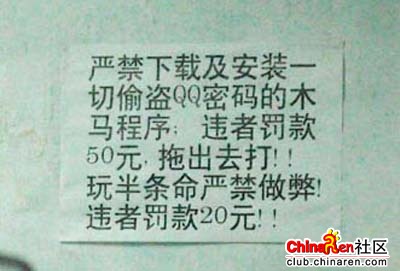 严禁下载及安装一
切偷盗QQ密码的木
马程序; 违者罚款
50元,拖出去打!!
玩半条命严禁做弊!
违者罚款20元!!
ChinaRen社区
club.chinaren.com